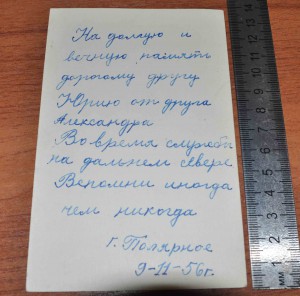 На долгую и
вечную память
дорогому другу
Юрию от друга
Александра
Во время службы
на дальнем севере
Вспомни иногда
чем никогда
г. Полярное
9-11-56г.
1 2 3 4 5 6 7 8 9 10 11 12 13 14